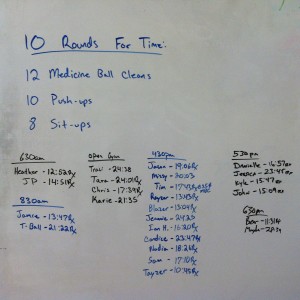 10 Rounds For Time:
12 Medicine Ball Cleans
10 Push-ups
8 Sit-ups
630am
Heather - 12:52Rx
JP - 14:51Rx
830am
Jamie - 13:47Rx
T-Ball - 21:22Rx
open Gym
Traci - 24:38
Tara - 24:01Rx
Chris - 17:34Rx
Karie - 21:35
430pm
Jason - 19:06Rx
Missy - 30:03
Tim - 17:43Rx
Roger - 13:43Rx
Blazer - 13:04Rx
Jennie - 24:25
Ian H. - 16:20Rx
Candice - 23:47Rx
Nadia - 18:26Rx
Sam - 17:10Rx
Tayzer - 10:45Rx
530pm
Danielle - 16:57
Jessica - 23:47
Kyle - 15:47
John - 15:09
630pm
Ben - 11:314